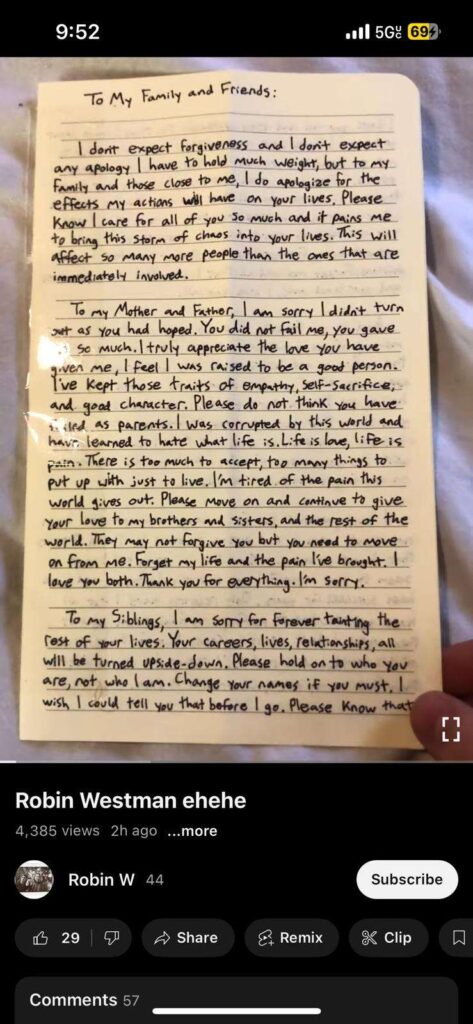 9:52
5G
69
To My Family and Friends:
I dont expect forgiveness and I don't expect
any apology I have to hold much weight, but to my
family and those close to me, I do apologize for the
effects my actions will have on your lives. Please
Know I care for all of you so much and it pains me
to bring this storm of chaos into your lives. This will
affect so many more people than the ones that are
immediately involved.
To my Mother and Father, I am sorry I didn't turn
out as you had hoped. You did not fail me, you gave
so much. I truly appreciate the love you have
given me, I feel I was raised to be a good person.
I've kept those traits of empathy, self-sacrifice,
and good character. Please do not think you have
failed as parents. I was corrupted by this world and
have learned to hate what life is. Life is love, life is
pain. There is too much to accept, too many things to
put up with just to live. I'm tired of the pain this
world gives out. Please move on and continue to give
your love to my brothers and sisters, and the rest of the
world. They may not forgive you but you need to move
on from me. Forget my life and the pain I've brought. I
love you both. Thank you for everything. I'm sorry.
To my Siblings, I am sorry for forever tainting the
rest of your lives. Your careers, lives, relationships, all
will be turned upside-down. Please hold on to who you
are, not who I am. Change your names if you must. I
wish I could tell you that before I go. Please know that
Robin Westman ehehe
4,385 views 2h ago ...more
Robin W 44
Subscribe
29
Share
Remix
Clip
Comments 57